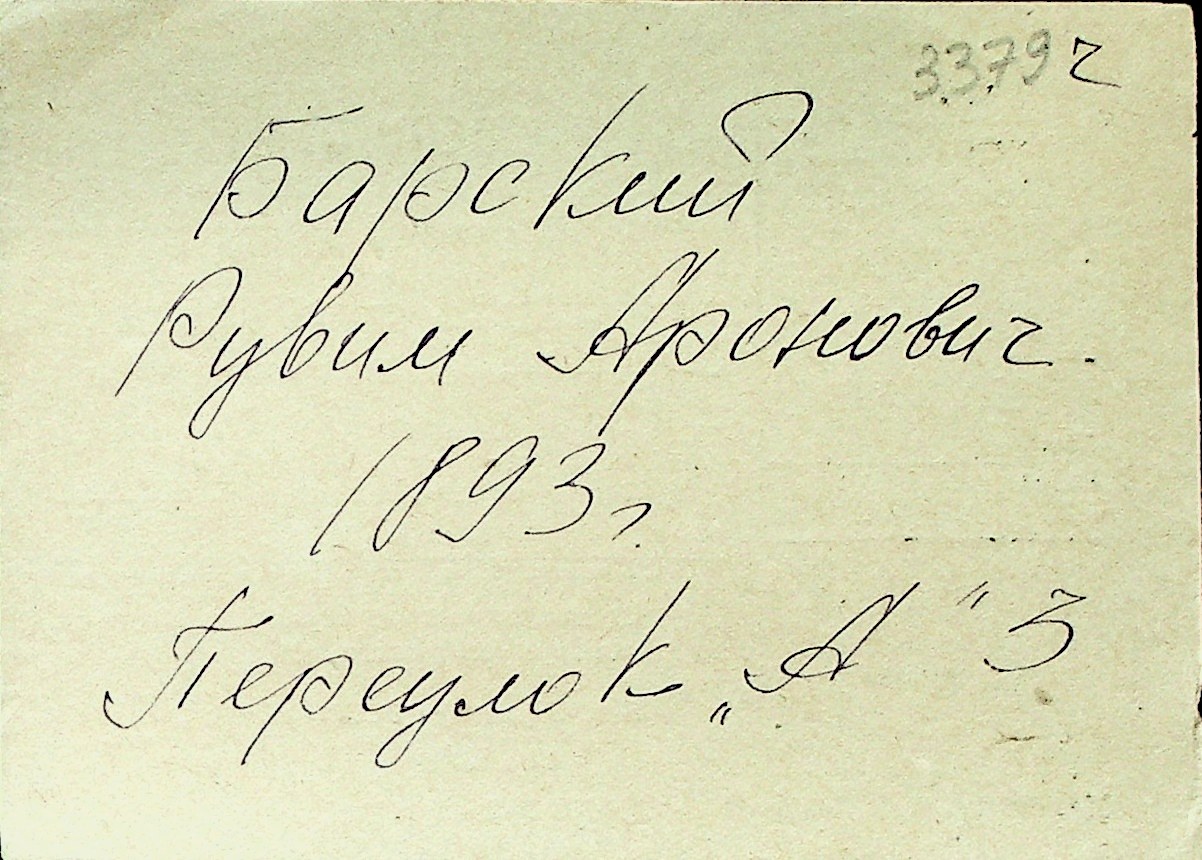 3379 ч
Барский
Рувим Аронович.
1893 г.
Переулок „А" 3